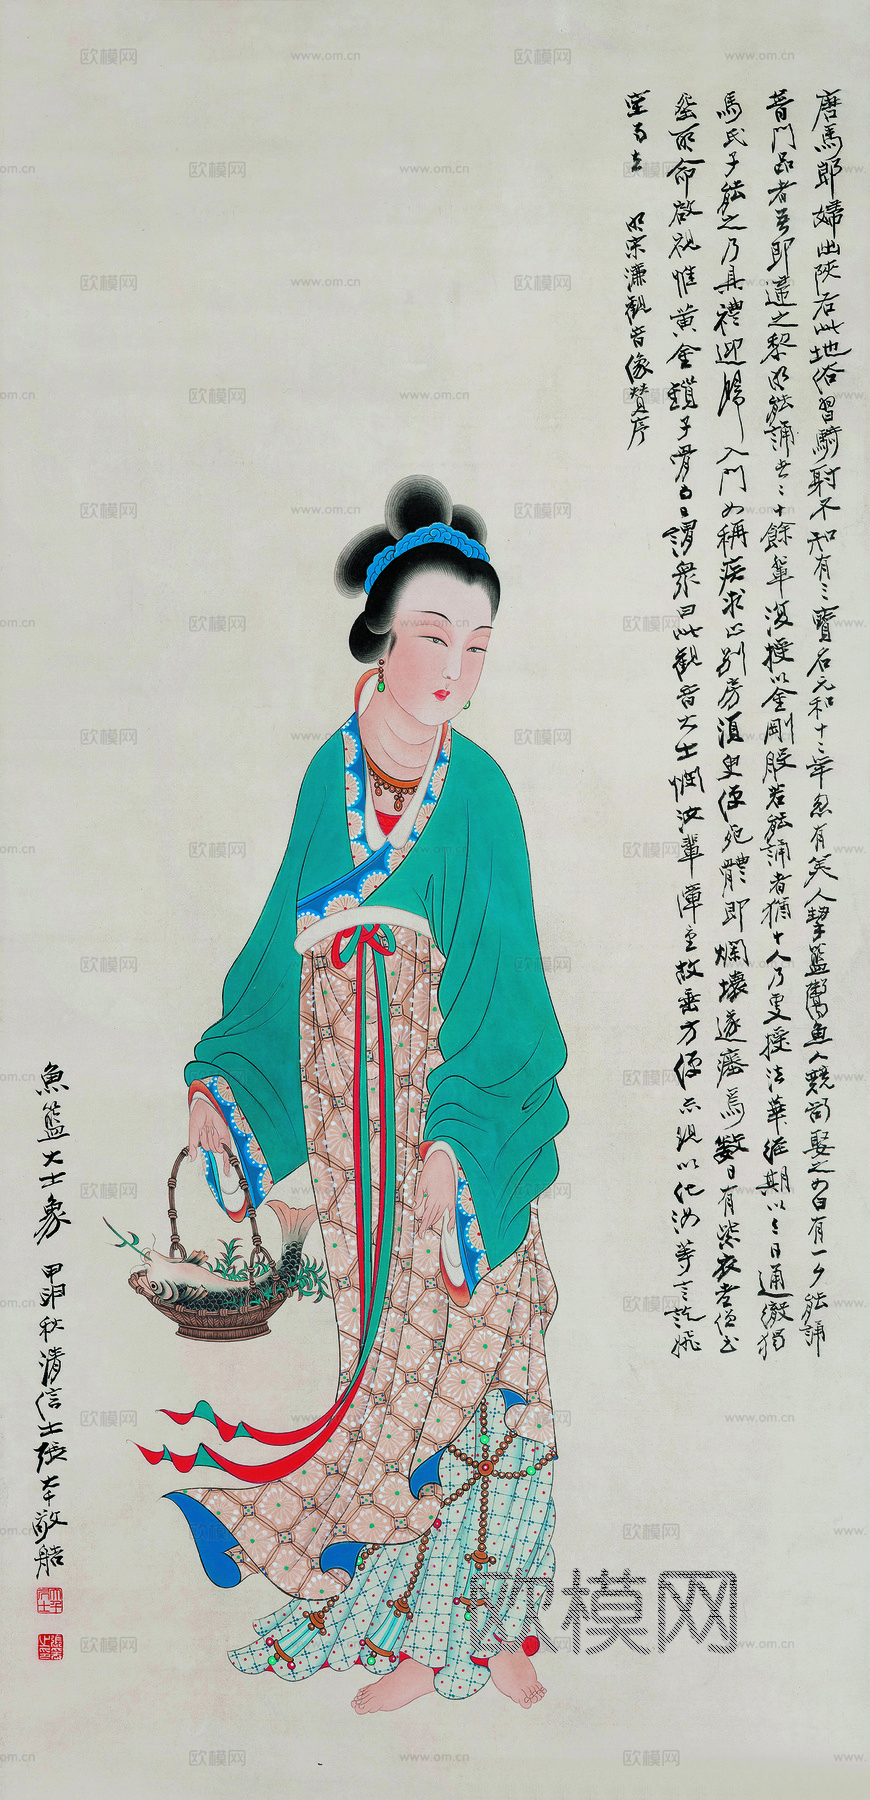 唐馬郎婦出陝右此地俗習騎射不知有三寶名元和十二年忽有美人挈籃鬻魚人競欲娶之女曰有一夕能誦
普門品者吾即遣之黎明能誦者二十餘輩復授以金剛般若能誦者猶十人乃更授法華經期以三日通徹獨
馬氏子能之乃具禮迎歸入門女稱疾求止別房須臾便死體即爛壞遂瘞焉數日有紫衣老僧至
瘞所命啟視惟黃金鎖子骨存焉謂眾曰此觀音大士憫汝輩障重故垂方便示現以化汝等言訖飛
空而去 明宋濂觀音像贊序
魚籃大士象 甲申秋清信士張大千敬造
欧模网
www.om.cn